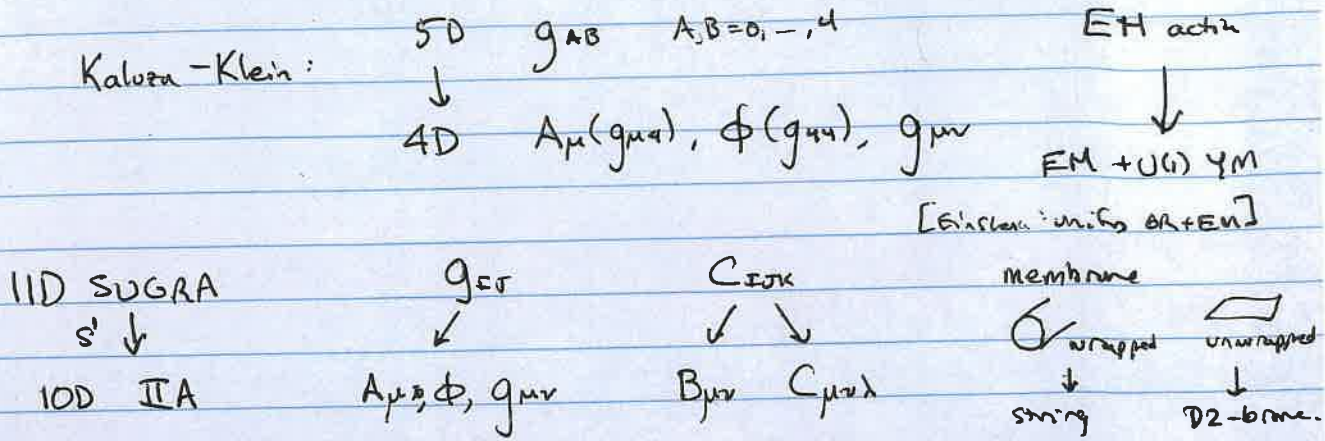 5D g_{AB} A,B=0,-,4 EH action
Kaluza-Klein: ↓ ↓
4D A_μ(g_{μ4}), ϕ(g_{44}), g_{μν}
EM + U(1) YM
[Einstein: unify GR+EM]
11D SUGRA g_{IJ} C_{IJK} membrane
S' ↓ ↙ ↙ ↘ wrapped unwrapped
↓ ↓
10D IIA A_μ, ϕ, g_{μν} B_{μν} C_{μνλ} string D2-brane.